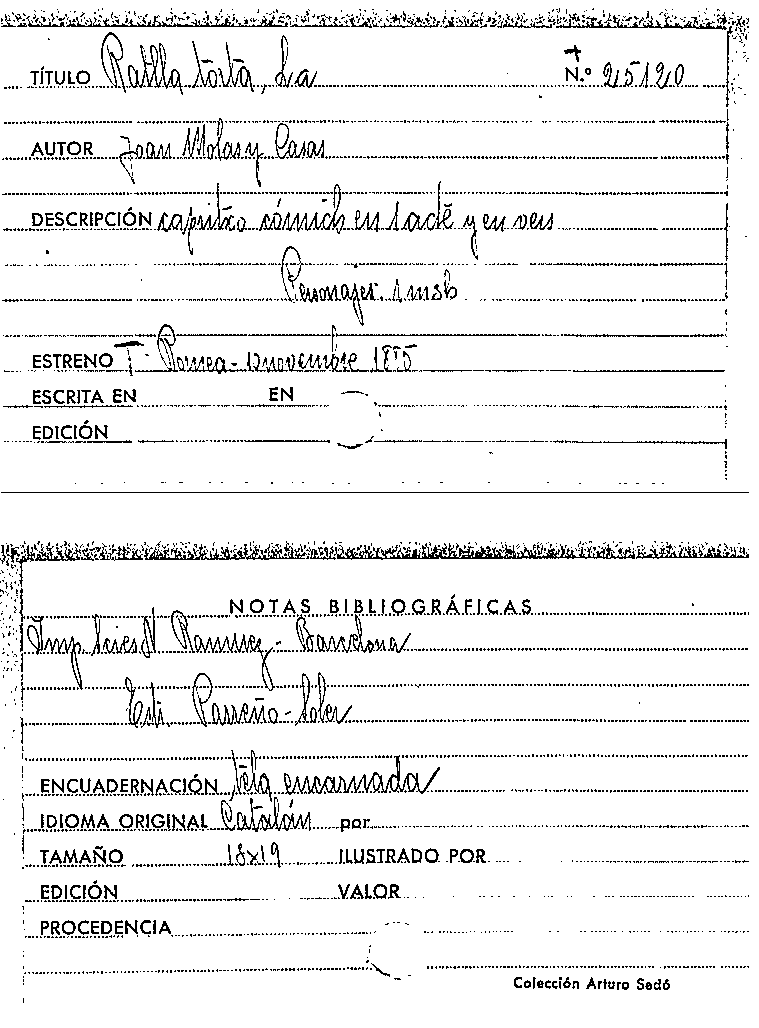 TÍTULO Ratlla torta, La N.º 25120
AUTOR Joan Molas y Casas
DESCRIPCIÓN capritxo cómich en 1 acte y en vers
Personajes. 1 msb
ESTRENO T. Romea - novembre 1885
ESCRITA EN EN
EDICIÓN
NOTAS BIBLIOGRÁFICAS
Imp. Sucs. N. Ramirez - Barcelona
Estr. Parreño - Soler
ENCUADERNACIÓN tela encarnada
IDIOMA ORIGINAL Catalán por
TAMAÑO 18x19 ILUSTRADO POR
EDICIÓN VALOR
PROCEDENCIA
Colección Arturo Sedó